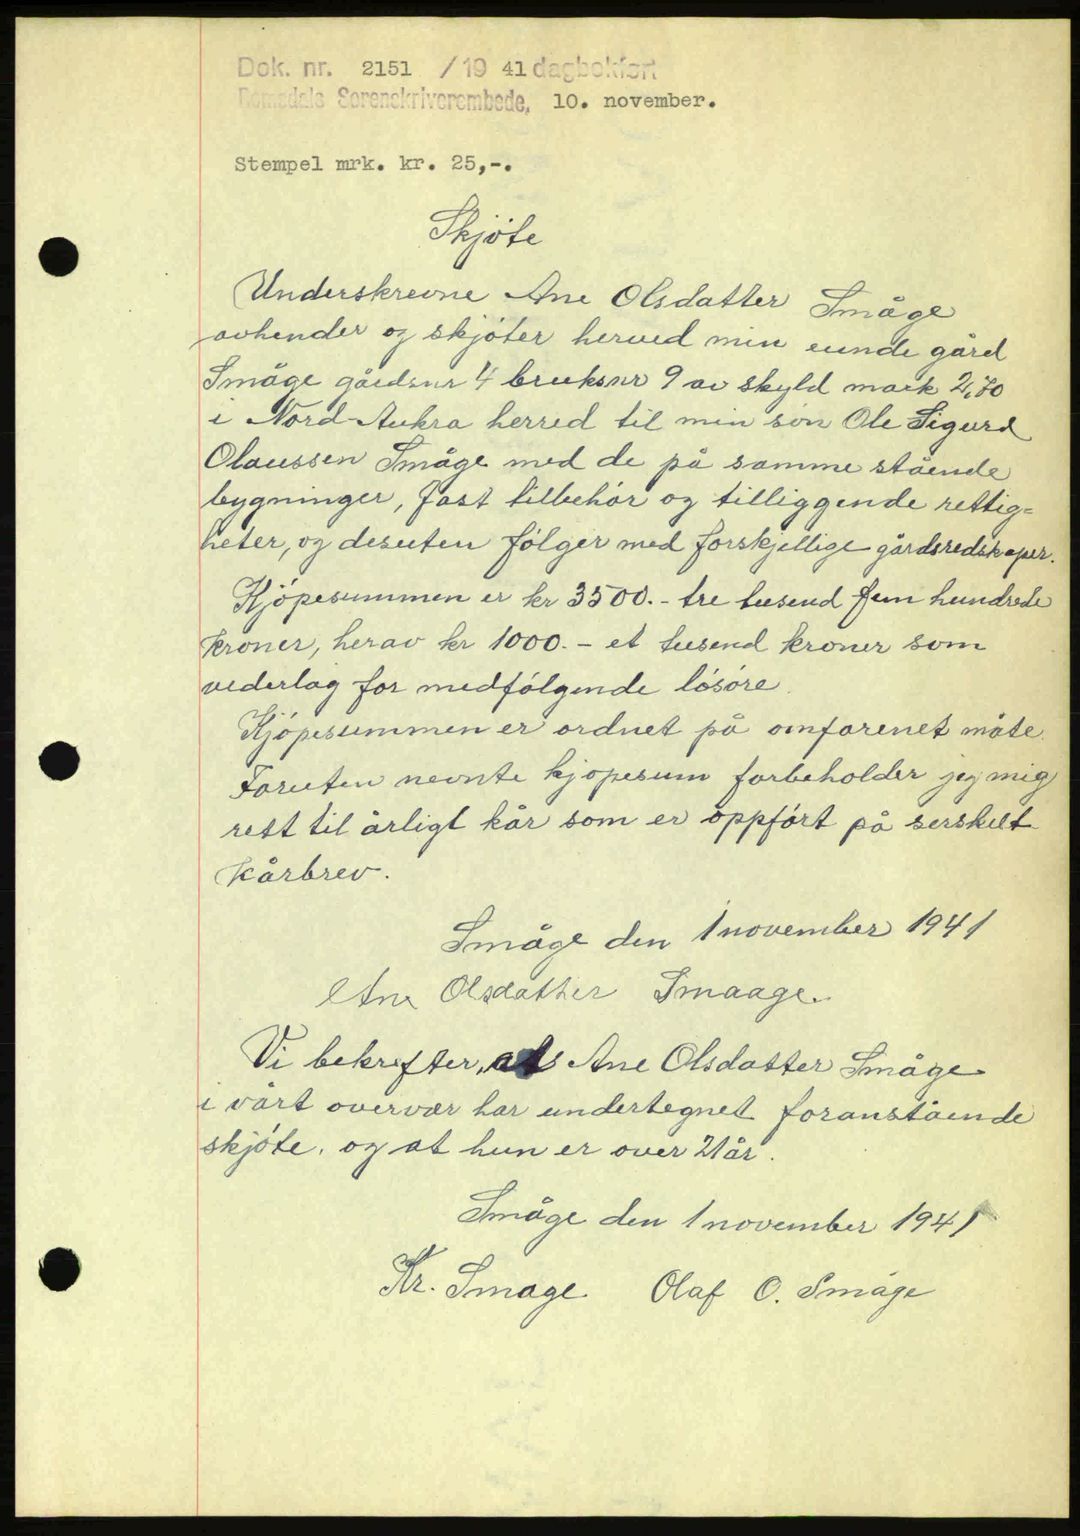 Dok. nr. 2151 / 19 41 dagbokført
Romsdals Sorenskriverembede, 10. november.
Stempel mrk. kr. 25,-.
Skjóte
Underskrevne Ane Olsdatter Småge
avhender og skjóter herved min eiende gård
Småge gårdsnr 4 bruksnr 9 av skyld mark 2,70
i Nord-Aukra herred til min sön Ole Sigurd
Olaussen Småge med de på samme stående
bygninger, fast tilbehór og tilliggende rettig=
heter, og desuten fólger med forskjellige gårdsredskaper.
Kjópesummen er kr 3500.- tre tusend fem hundrede
kroner, herav kr 1000.- et tusend kroner som
vederlag for medfólgende lósóre.
Kjópesummen er ordnet på omforenet måte.
Foruten nevnte kjopesum forbeholder jeg mig
rett til årligt kår som er oppfórt på serskilt
kårbrev.
Småge den 1 november 1941
Ane Olsdatter Smaage.
Vi bekrefter, at Ane Olsdatter Småge
i vårt overvær har undertegnet foranstående
skjóte, og at hun er over 21 år.
Småge den 1 november 1941
Kr. Smage. Olaf O. Småge